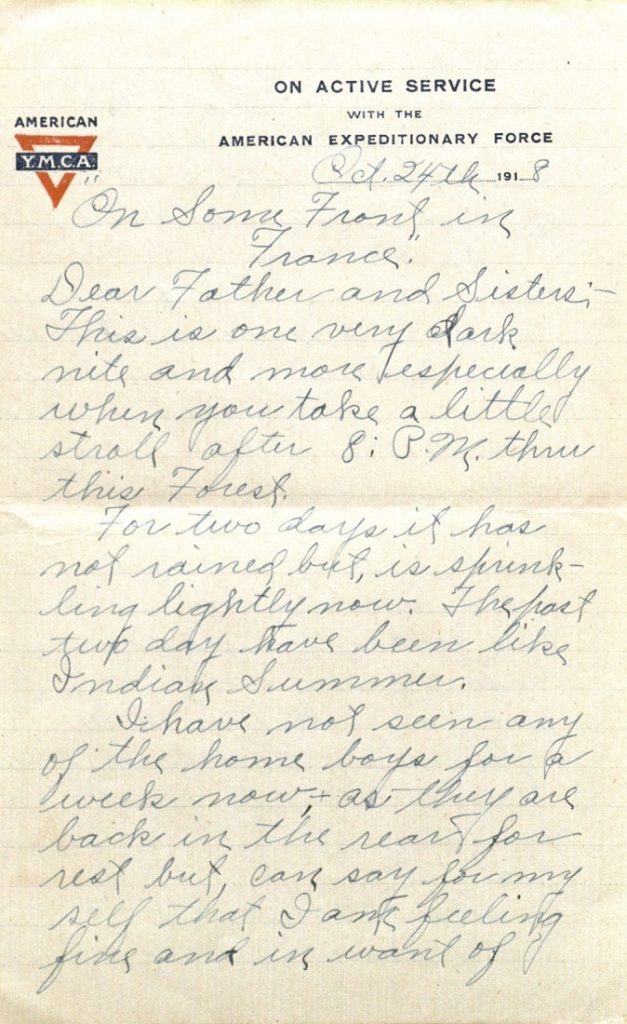 ON ACTIVE SERVICE
WITH THE
AMERICAN EXPEDITIONARY FORCE
AMERICAN
Y.M.C.A.
Oct. 24th 1918
"On Some Front in
France".
Dear Father and Sisters;-
This is one very dark
nite and more especially
when you take a little
stroll after 8: P.M. thru
this Forest.
For two days it has
not rained but, is sprink-
ling lightly now. The past
two day have been like
Indian Summer.
I have not seen any
of the home boys for a
week now, + as they are
back in the rear for
rest but, can say for my
self that I am feeling
fine and in want of